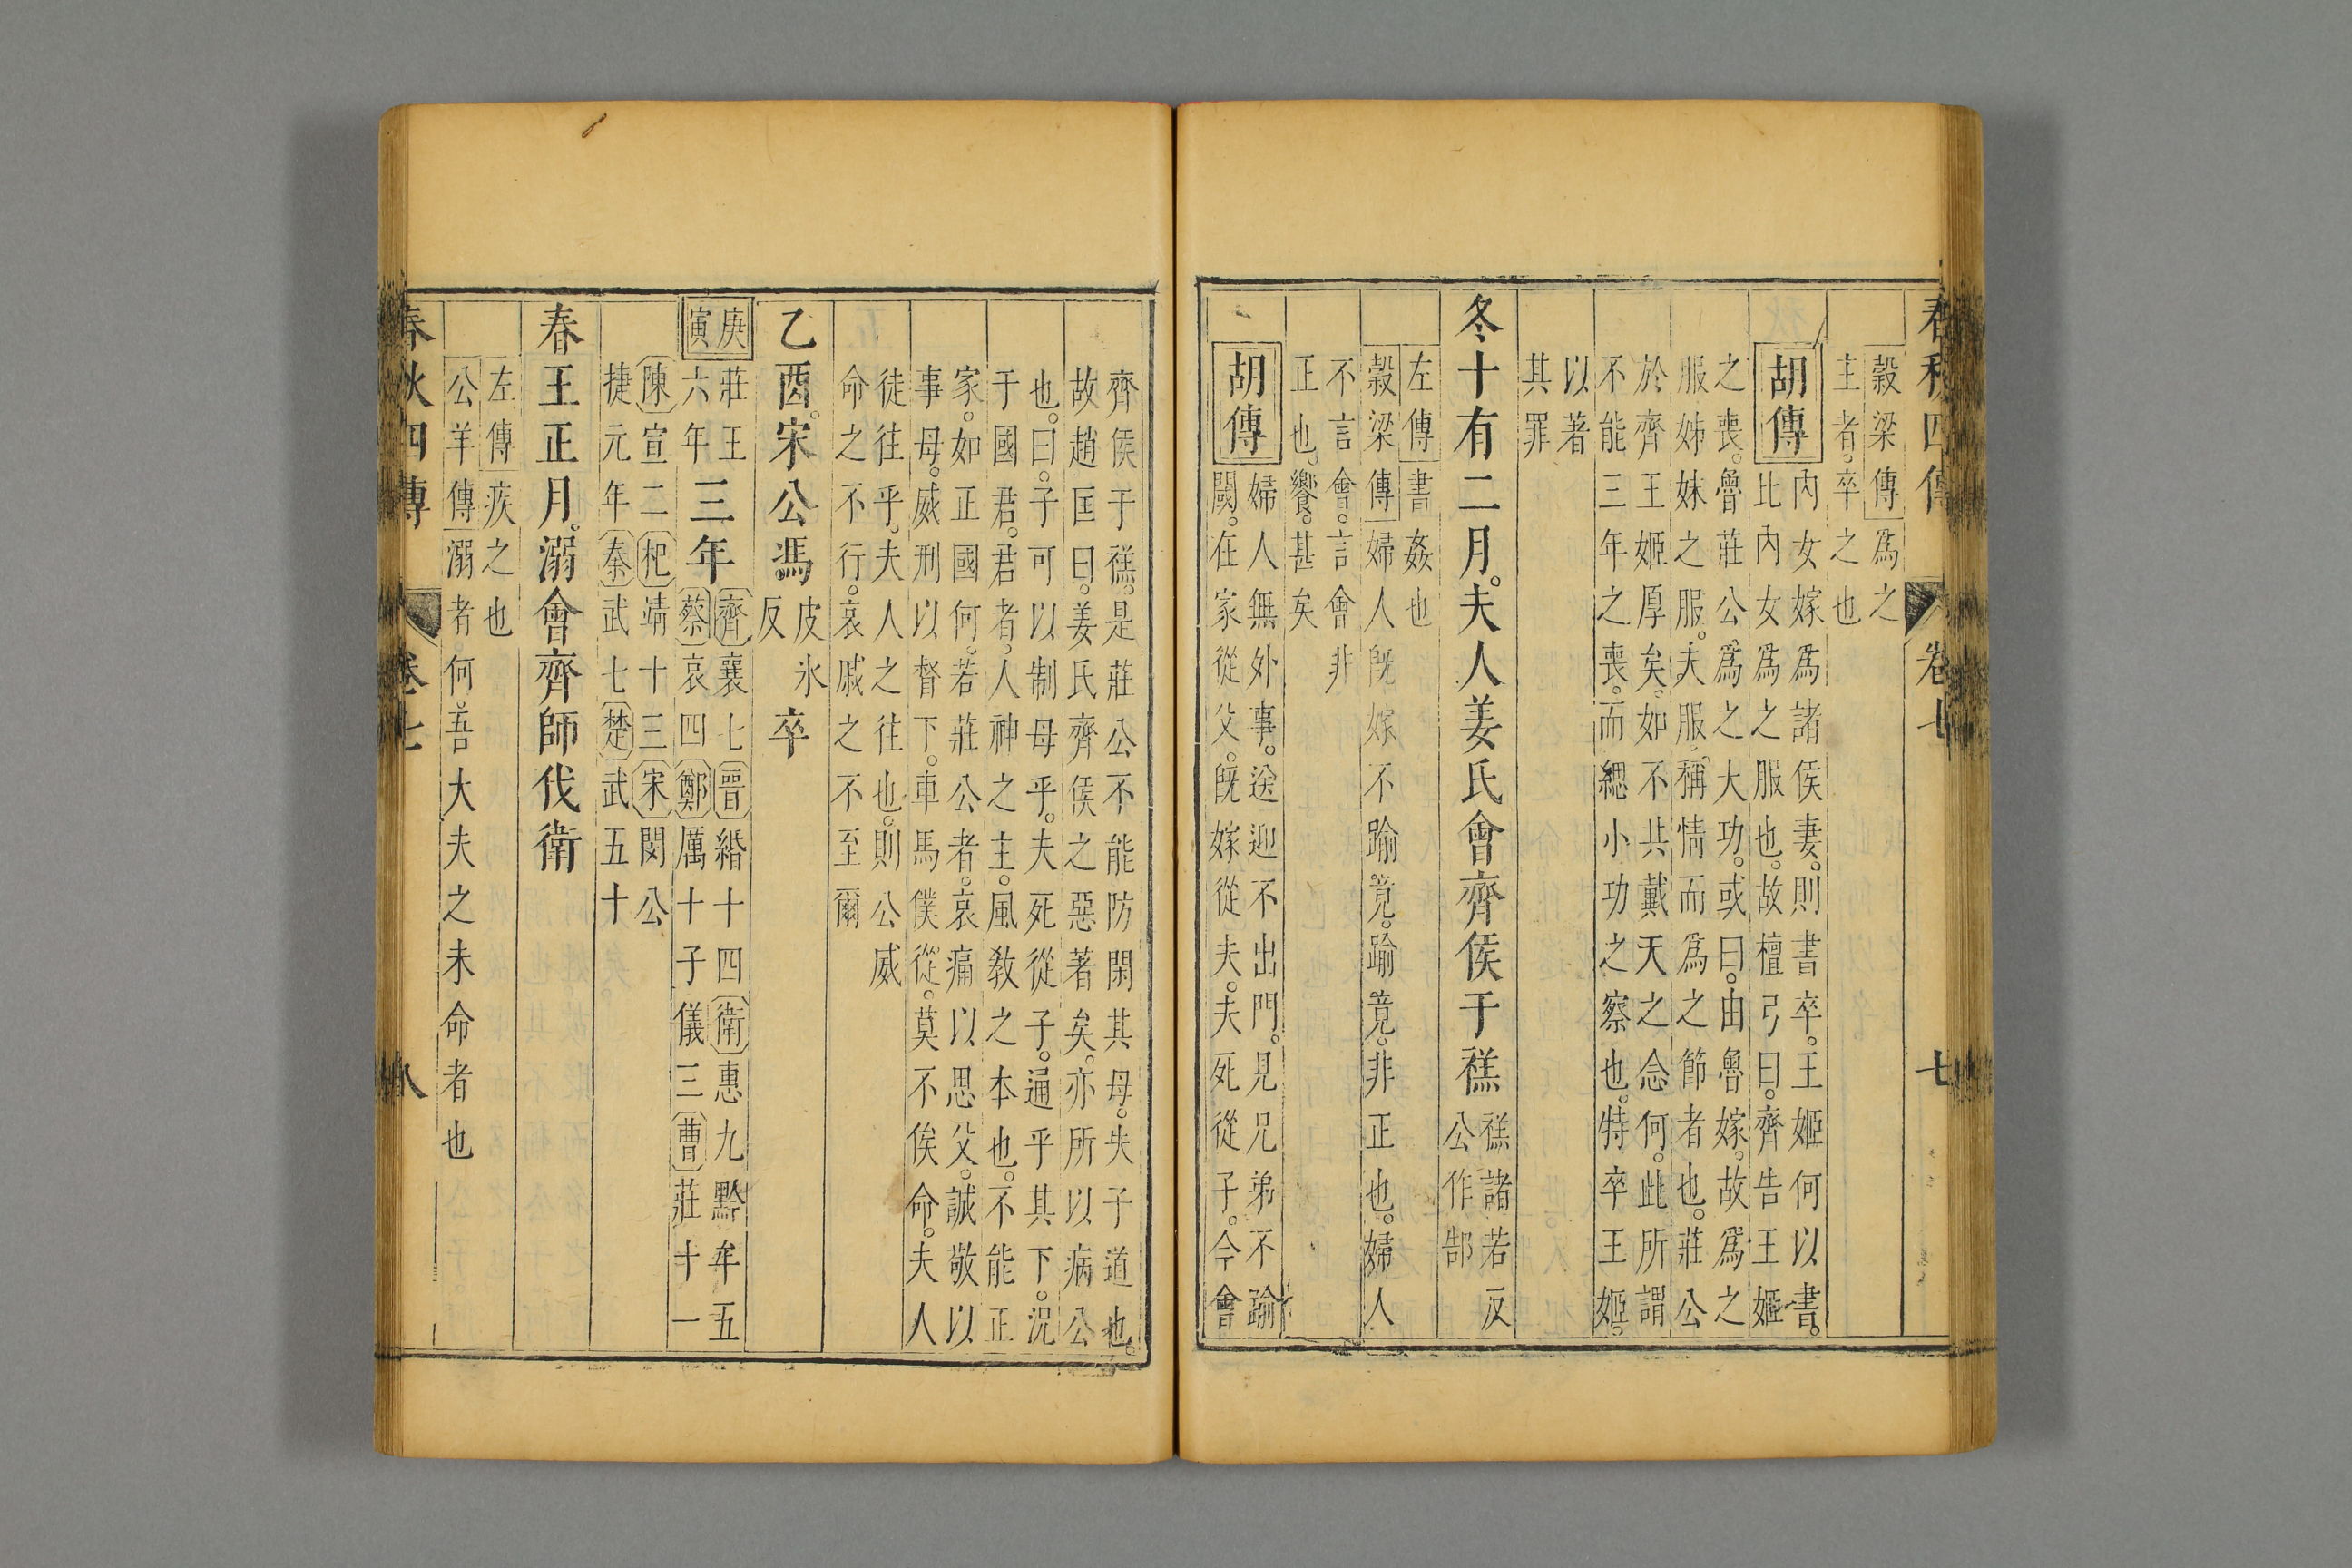 春秋四傳 卷七 七
穀梁傳爲之
主者卒之也
胡傳
內女嫁爲諸侯妻則書卒王姬何以書
比內女爲之服也故檀弓曰齊告王姬
之喪魯莊公爲之大功或曰由魯嫁故爲之
服姊妹之服夫服稱情而爲之節者也莊公
於齊王姬厚矣如不共戴天之念何此所謂
不能三年之喪而緦小功之察也特卒王姬
以著
其罪
冬十有二月夫人姜氏會齊侯于禚
禚諸若反
公作郜
左傳書姦也
穀梁傳婦人旣嫁不踰竟踰竟非正也婦人
不言會言會非
正也饗甚矣
胡傳
婦人無外事送迎不出門見兄弟不踰
閾在家從父旣嫁從夫夫死從子今會
齊侯于禚是莊公不能防閑其母失子道也
故趙匡曰姜氏齊侯之惡著矣亦所以病公
也曰子可以制母乎夫死從子通乎其下況
于國君君者人神之主風敎之本也不能正
家如正國何若莊公者哀痛以思父誠敬以
事母威刑以督下車馬僕從莫不俟命夫人
徒往乎夫人之往也則公威
命之不行哀戚之不至爾
乙酉宋公馮
皮氷
反
卒
庚寅
莊王
六年
三年
齊襄七晉緡十四衛惠九黔牟五
蔡哀四鄭厲十子儀三曹莊十一
陳宣二杞靖十三宋閔公
捷元年秦武七楚武五十
春王正月溺會齊師伐衛
左傳疾之也
公羊傳溺者何吾大夫之未命者也
春秋四傳 卷七 八